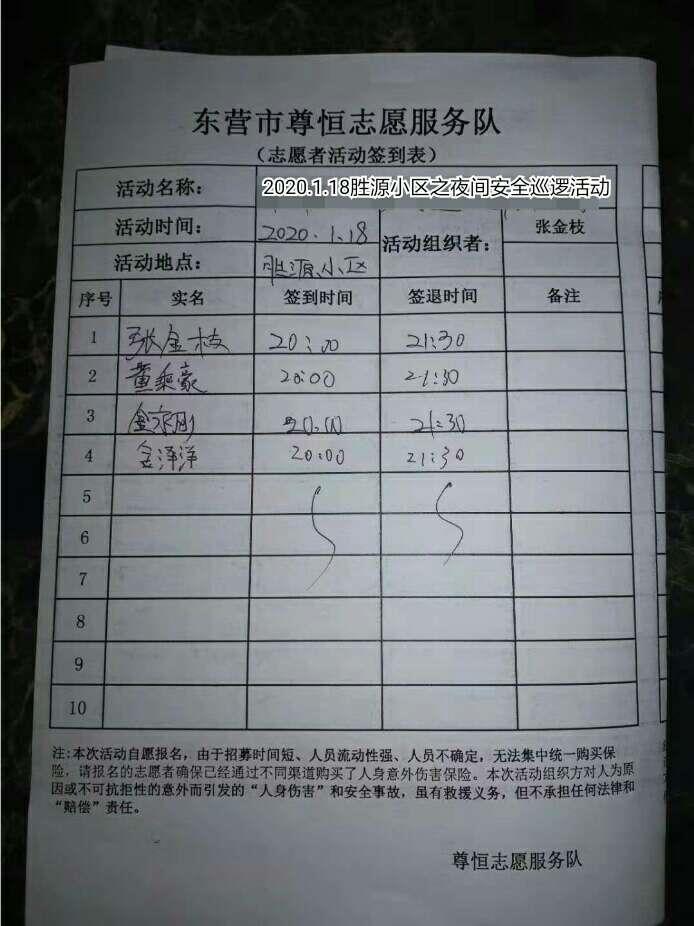 东营市尊恒志愿服务队
（志愿者活动签到表）
活动名称： 2020.1.18胜源小区之夜间安全巡逻活动
活动时间： 2020.1.18 活动组织者： 张金枝
活动地点： 胜源小区
序号 实名 签到时间 签退时间 备注
1 张金枝 20:00 21:30
2 董乘豪 20:00 21:30
3 20:00 21:30
4 金泽洋 20:00 21:30
5
6
7
8
9
10
注:本次活动自愿报名，由于招募时间短、人员流动性强、人员不确定，无法集中统一购买保
险，请报名的志愿者确保已经通过不同渠道购买了人身意外伤害保险。本次活动组织方对人为原
因或不可抗拒性的意外而引发的“人身伤害”和安全事故，虽有救援义务，但不承担任何法律和
“赔偿”责任。
尊恒志愿服务队